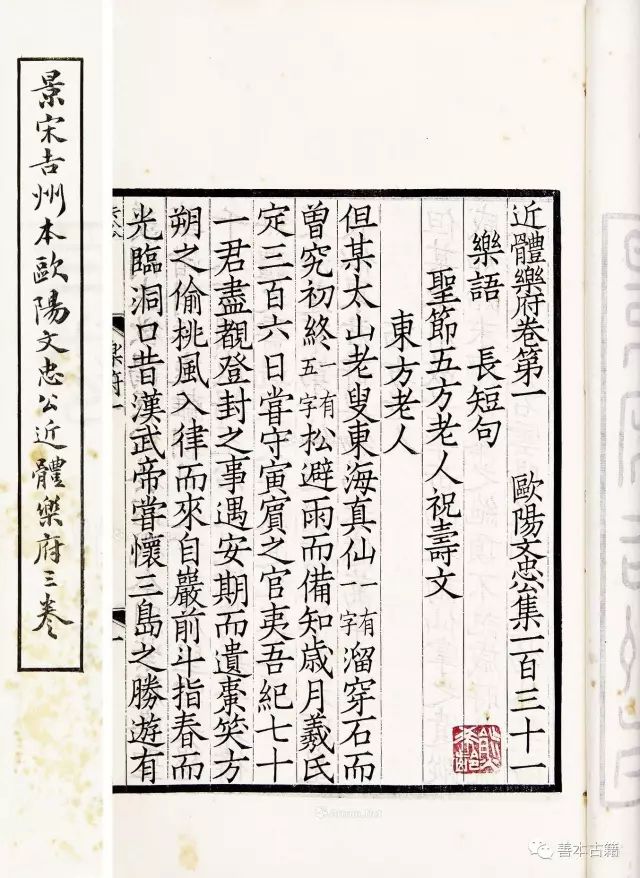 近體樂府卷第一 歐陽文忠公集一百三十一
樂語 長短句
聖節五方老人祝壽文
東方老人
但某太山老叟東海真仙一有字溜穿石而
曾究初終一有五字松避雨而備知歲月羲氏
定三百六日嘗守寅賓之官夷吾紀七十
一君盡觀登封之事遇安期而遺棗笑方
朔之偷桃風入律而來自巖前斗指春而
光臨洞口昔漢武帝嘗懷三島之勝遊有
樂府一
景宋吉州本歐陽文忠公近體樂府三卷
善本古籍